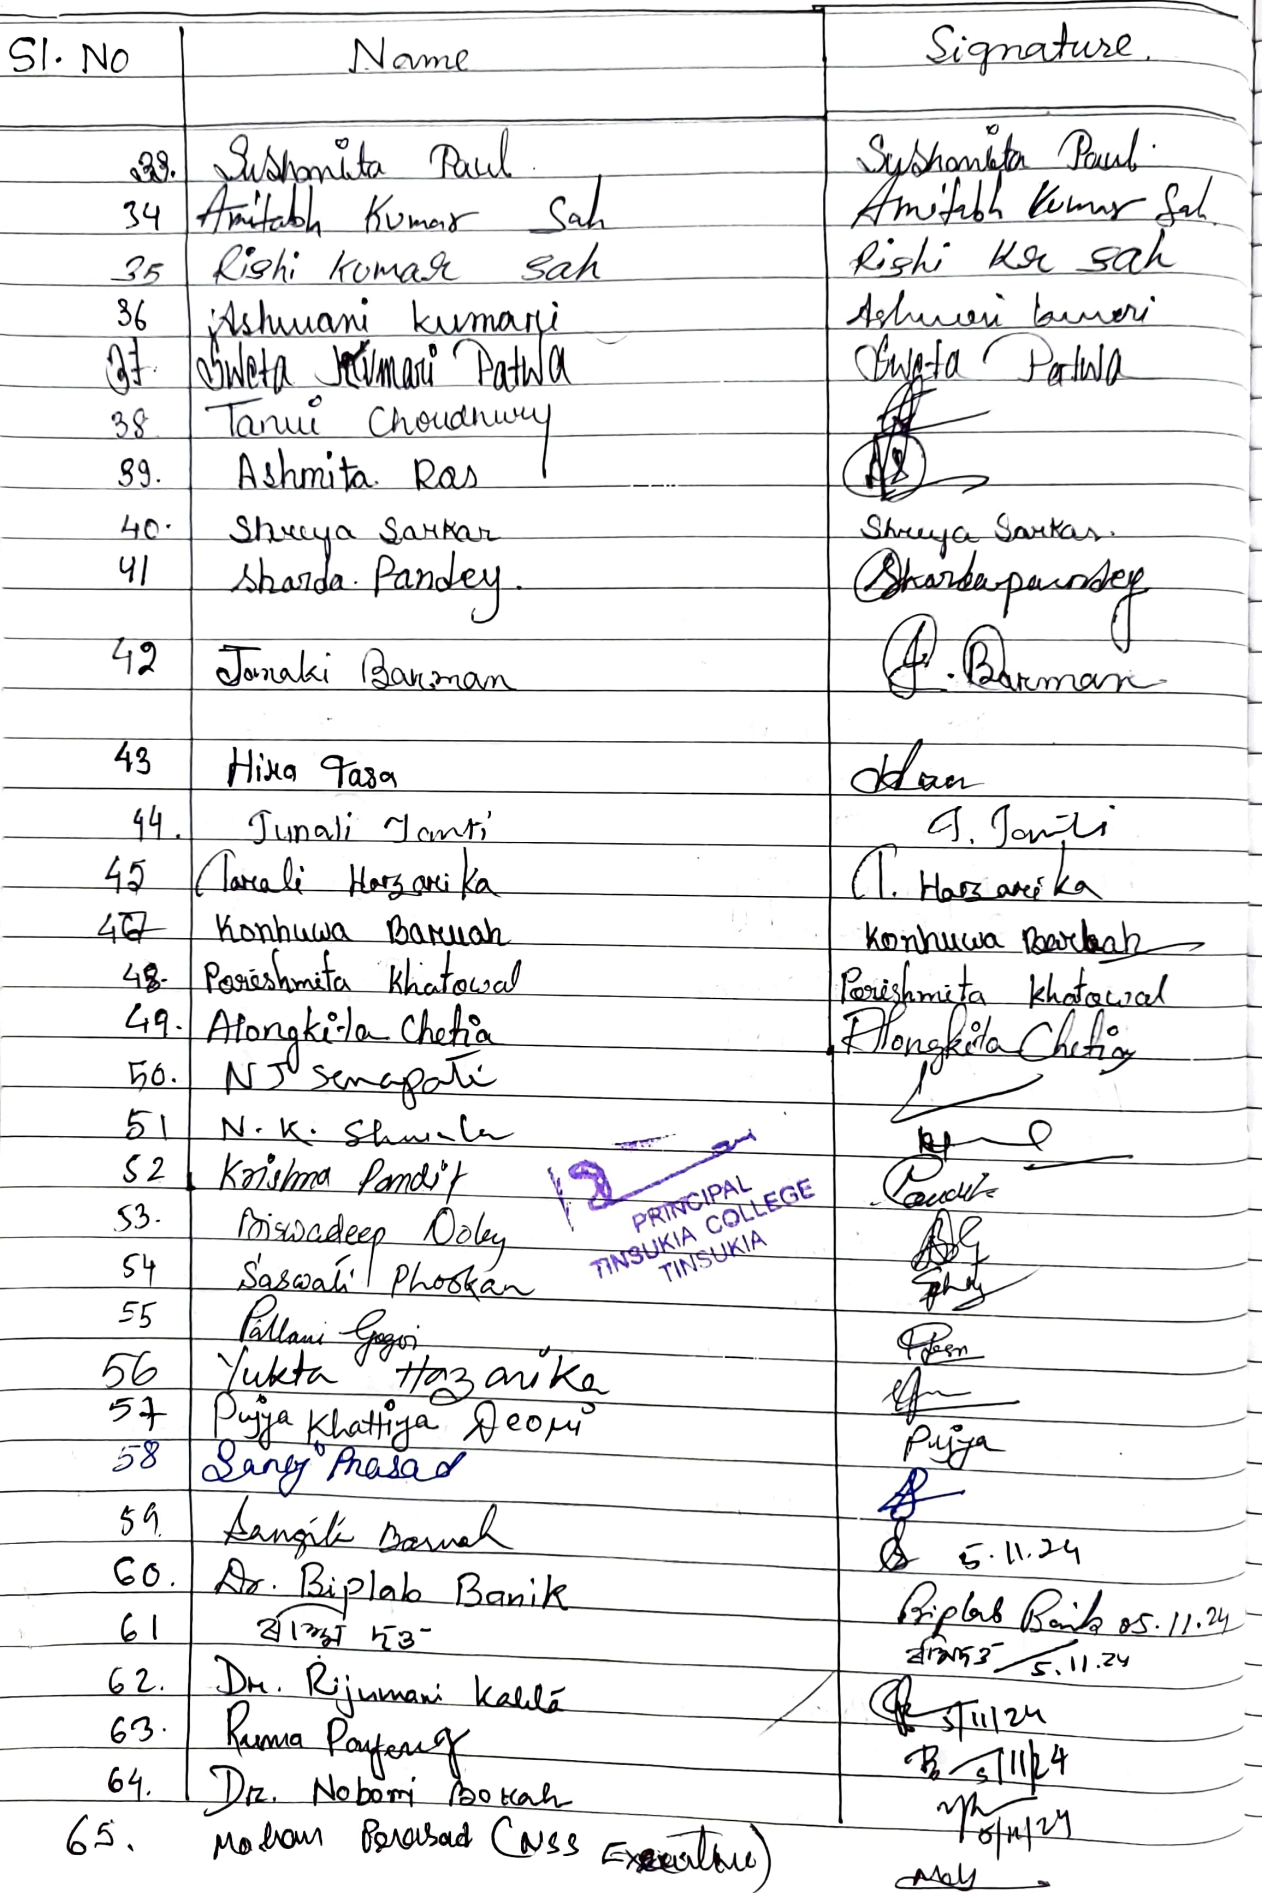 Sl. No Name Signature.
33. Sushmita Paul Sushmita Paul
34 Amitabh Kumar Sah Amitabh Kumar Sah
35 Rishi Kumar Sah Rishi Kr Sah
36 Ashwani Kumari Ashwani Kumari
37. Sweta Kumari Patwa Sweta Patwa
38 Tanvi Choudhury
39. Ashmita Ras
40. Shreya Sarkar Shreya Sarkar.
41 Sharda Pandey. Sharda pandey
42 Janaki Barman J. Barman
43 Hira Tasa
44. Junali Tanti J. Tanti
45 Tarali Hazarika T. Hazarika
47 Konhuwa Baruah Konhuwa Baruah
48. Porishmita Khatowal Porishmita Khatowal
49. Alongkita Chetia Alongkita Chetia
50. NJ Senapati
51 N. K.
52 Krishna Pandit Pandit
53. Biswadeep Doley
PRINCIPAL
TINSUKIA COLLEGE
TINSUKIA
54 Saswati Phookan
55 Gogoi
56 Yukta Hazarika
57 Pujya Khattiya Deori Pujya
58 Prasad
59 Baruah 5.11.24
60. Dr. Biplab Banik Biplab Banik 05.11.24
61 দত্ত 5.11.24
62. Dr. Rijumani Kalita 5/11/24
63. Ruma Payeng 5/11/24
64. Dr. Nobomi Borah 5/11/24
65. Mohan Perasad (NSS Executive)